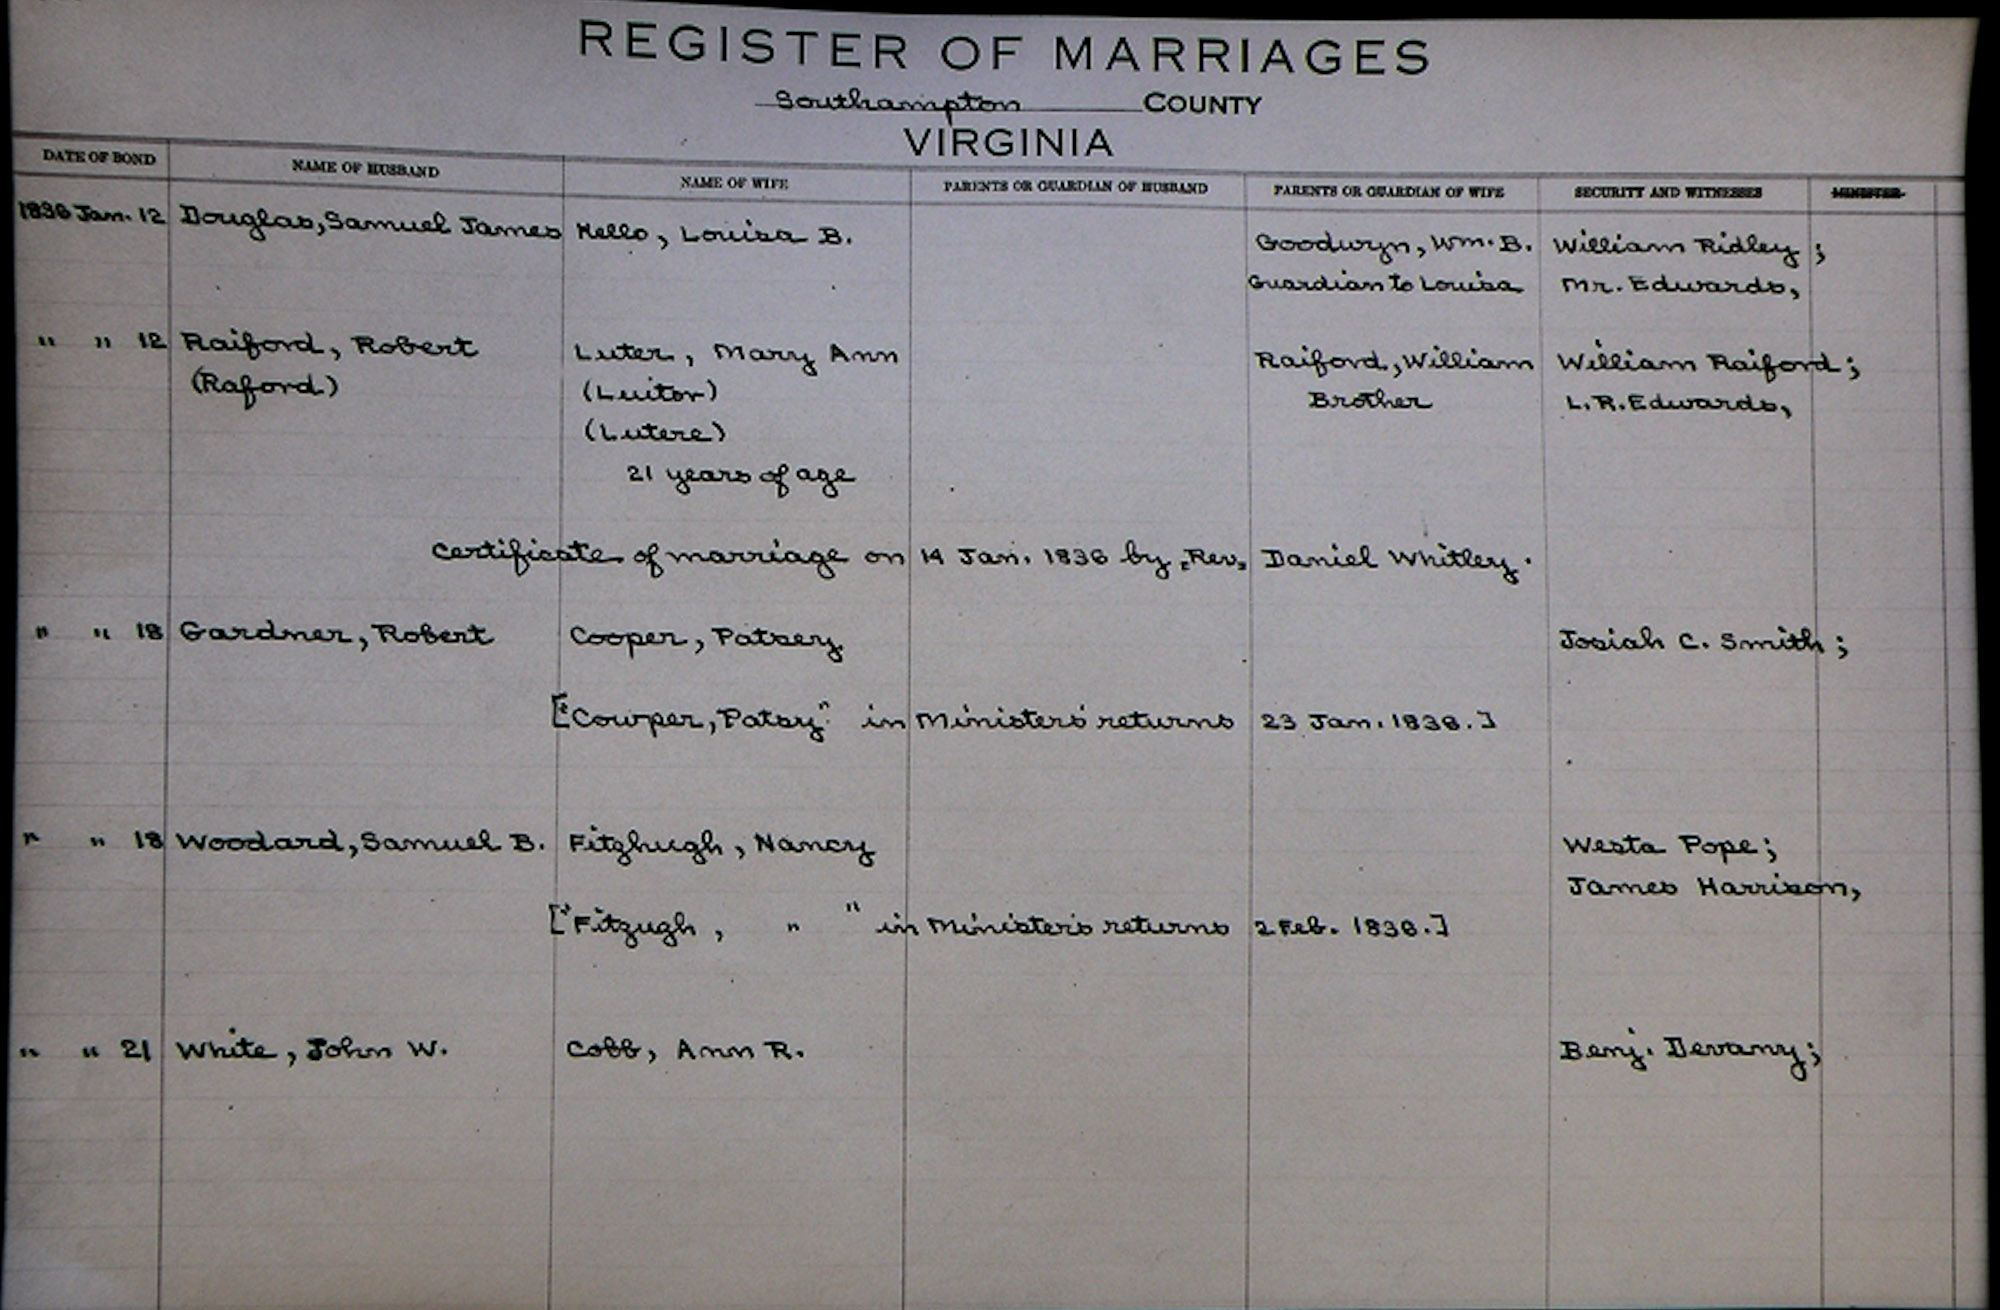 REGISTER OF MARRIAGES
Southampton COUNTY
VIRGINIA
DATE OF BOND NAME OF HUSBAND NAME OF WIFE PARENTS OR GUARDIAN OF HUSBAND PARENTS OR GUARDIAN OF WIFE SECURITY AND WITNESSES MINISTER
1836 Jan. 12 Douglas, Samuel James Kello, Louisa B. Goodwyn, Wm. B. William Ridley;
Guardian to Louisa Mr. Edwards,
" " 12 Raiford, Robert Luter, Mary Ann Raiford, William William Raiford;
(Raford) (Luitor) Brother L.R. Edwards,
(Lutere)
21 years of age
Certificate of marriage on 14 Jan. 1836 by "Rev" Daniel Whitley.
" " 18 Gardner, Robert Cooper, Patsey Josiah C. Smith;
["Cowper, Patsy" in Minister's returns 23 Jan. 1836.]
" " 18 Woodard, Samuel B. Fitzhugh, Nancy Westa Pope;
James Harrison,
["Fitzugh, " " in Minister's returns 2 Feb. 1836.]
" " 21 White, John W. Cobb, Ann R. Benj. Devany;